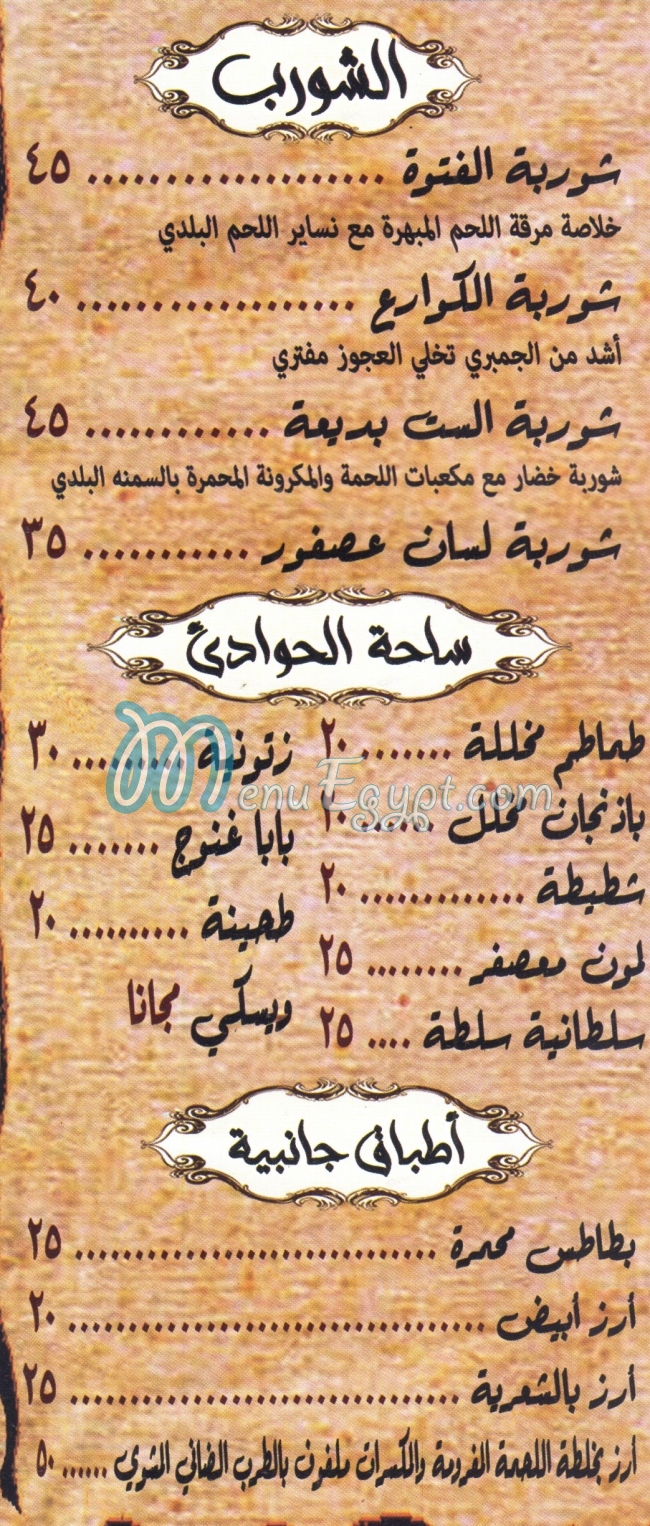 الشورب
شوربة الفتوة ................... ٤٥
خلاصة مرقة اللحم المبهرة مع نساير اللحم البلدي
شوربة الكوارع .................. ٤٠
أشد من الجمبري تخلي العجوز مفتري
شوربة الست بديعة ............ ٤٥
شوربة خضار مع مكعبات اللحمة والمكرونة المحمرة بالسمنه البلدي
شوربة لسان عصفور ........... ٣٥
ساحة الحوادئ
طماطم مخللة ........ ٢٠
باذنجان مخلل ...... ٢٠
شطيطة ............. ٢٠
لمون معصفر ........ ٢٥
سلطانية سلطة .... ٢٥
زتونية ......... ٣٠
بابا غنوج ....... ٢٥
طحينة .......... ٢٠
ويسكي مجانا
MenuEgypt.com
أطباق جانبية
بطاطس محمرة ............................... ٢٥
أرز أبيض ................................... ٢٠
أرز بالشعرية ................................. ٢٥
أرز بخلطة اللحمة المفرومة والكسرات ملفوف بالطرب الضاني الشوي ...... ٥٠